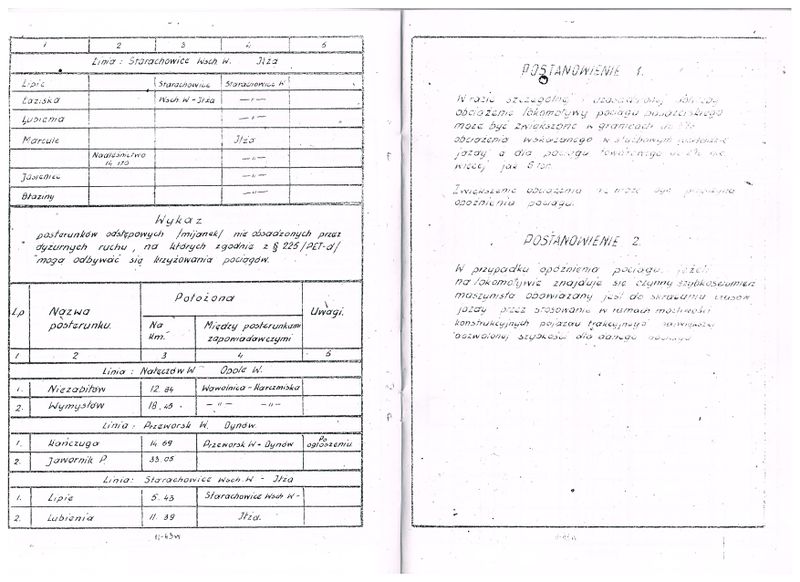 1 2 3 4 5
Linia: Starachowice Wsch. W. Iłża
Lipie Starachowice Starachowice W
Łaziska Wsch. W - Iłża —"—
Lubienia —"—
Marcule Iłża
Nadleśnictwo —"—
Jasieniec —"—
Błaziny —"—
Wykaz
posterunków odstępowych /mijanek/ nie obsadzonych przez
dyżurnych ruchu, na których zgodnie z § 225 /PET-d/
mogą odbywać się krzyżowania pociągów.
Lp Nazwa posterunku. Położona Uwagi.
Na km. Między posterunkami zapowiadawczymi
1 2 3 4 5
Linia: Nałęczów W Opole W.
1. Niezabitów 12.84 Wąwolnica - Karczmiska
2. Wymysłów 18.45 —"— —"—
Linia: Przeworsk W. Dynów.
1. Kańczuga 14.69 Przeworsk W - Dynów Po ogłoszeniu
2. Jawornik P. 33.05
Linia: Starachowice Wsch. W - Iłża
1. Lipie 5.43 Starachowice Wsch. W -
2. Lubienia 11.39 Iłża.
POSTANOWIENIE 1.
W razie szczególnej i uzasadnionej potrzeby
obciążenie lokomotywy pociągu pasażerskiego
może być zwiększone w granicach do
obciążenia wskazanego w służbowym rozkładzie
jazdy a dla pociągu towarowego do nie
więcej jak 6 ton.
Zwiększenie obciążenia nie może być przyczyną
opóźnienia pociągu.
POSTANOWIENIE 2.
W przypadku opóźnienia pociągu, jeżeli
na lokomotywie znajduje się czynny szybkościomierz
maszynista obowiązany jest do skracania czasów
jazdy przez stosowanie w ramach możliwości
konstrukcyjnych pojazdu trakcyjnego największej
dozwolonej szybkości dla danego pociągu